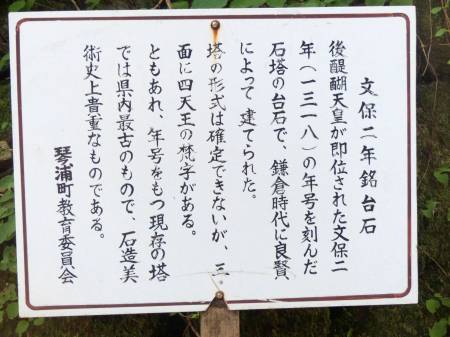 文保二年銘台石
後醍醐天皇が即位された文保二
年(一三一八)の年号を刻んだ
石塔の台石で、鎌倉時代に良賢
によって建てられた。
塔の形式は確定できないが、三
面に四天王の梵字がある。
ともあれ、年号をもつ現存の塔
では県内最古のもので、石造美
術史上貴重なものである。
琴浦町教育委員会